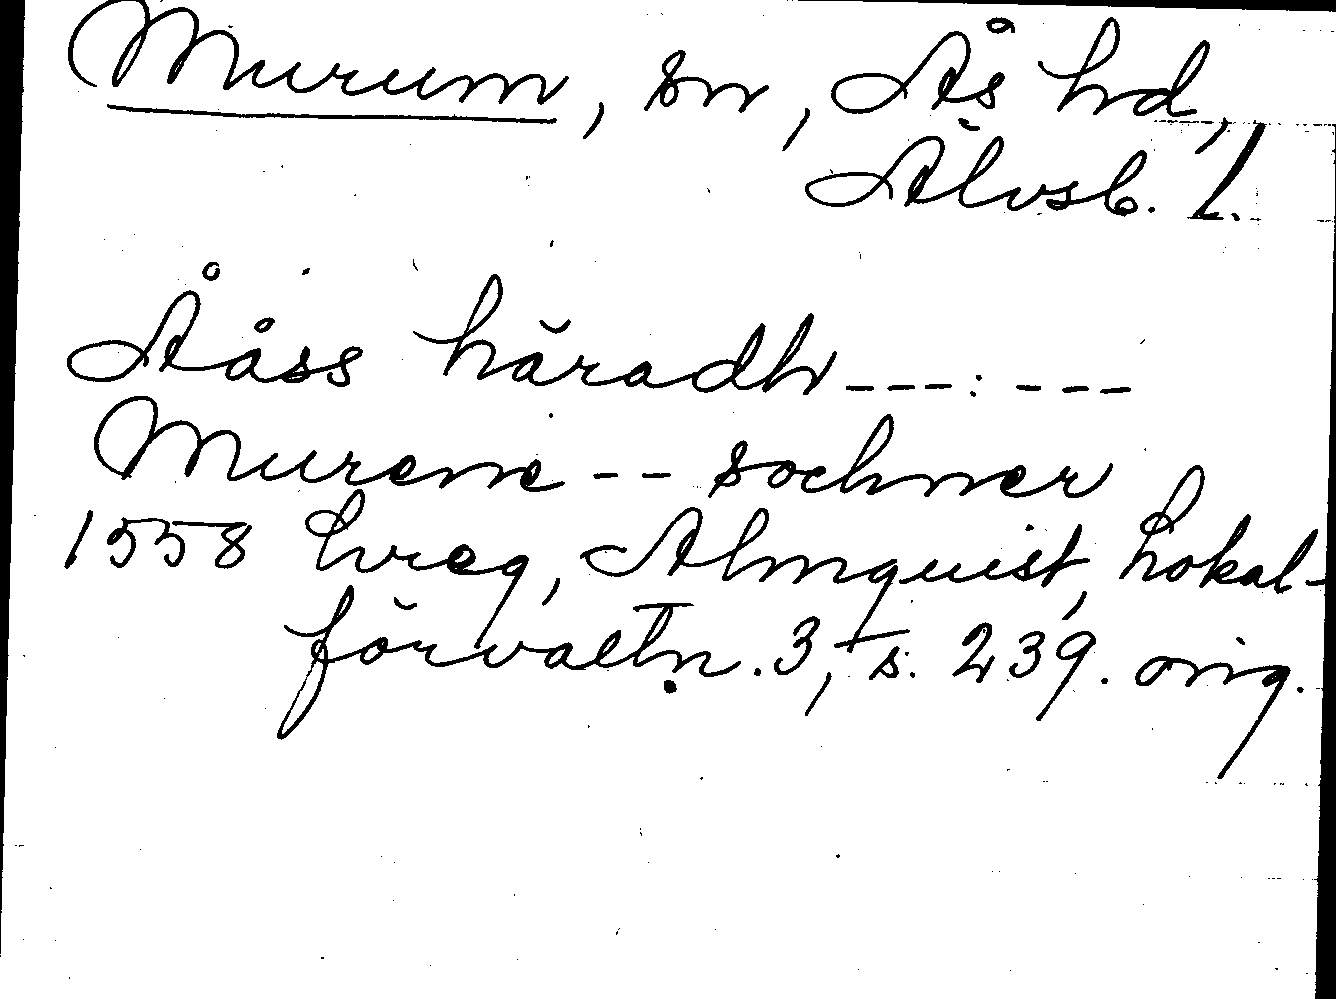 Murum, sn, Ås hd,
Älvsb. l.
Ååss häradh ---:---
Murene -- sochner
1558 hreg, Almquist, Lokal-
förvaltn. 3, s. 239. orig.